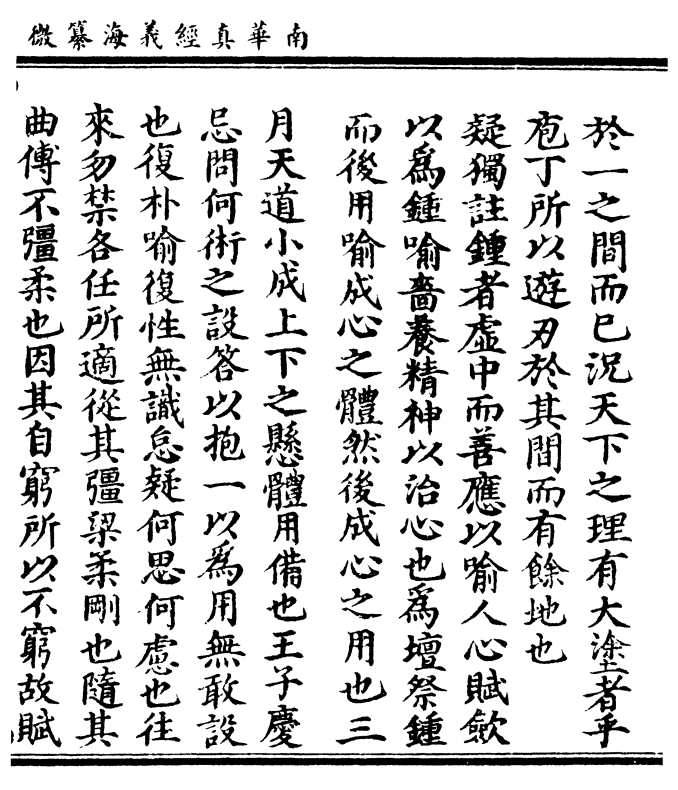 南華真經義海纂微
於一之間而已況天下之理有大塗者乎
庖丁所以遊刃於其間而有餘地也
疑獨註鍾者虛中而善應以喻人心賦斂
以為鍾喻嗇養精神以治心也為壇祭鍾
而後用喻成心之體然後成心之用也三
月天道小成上下之懸體用備也王子慶
忌問何術之設答以抱一以為用無敢設
也復朴喻復性無識怠疑何思何慮也往
來勿禁各任所適從其彊梁柔剛也隨其
曲傅不彊柔也因其自窮所以不窮故賦